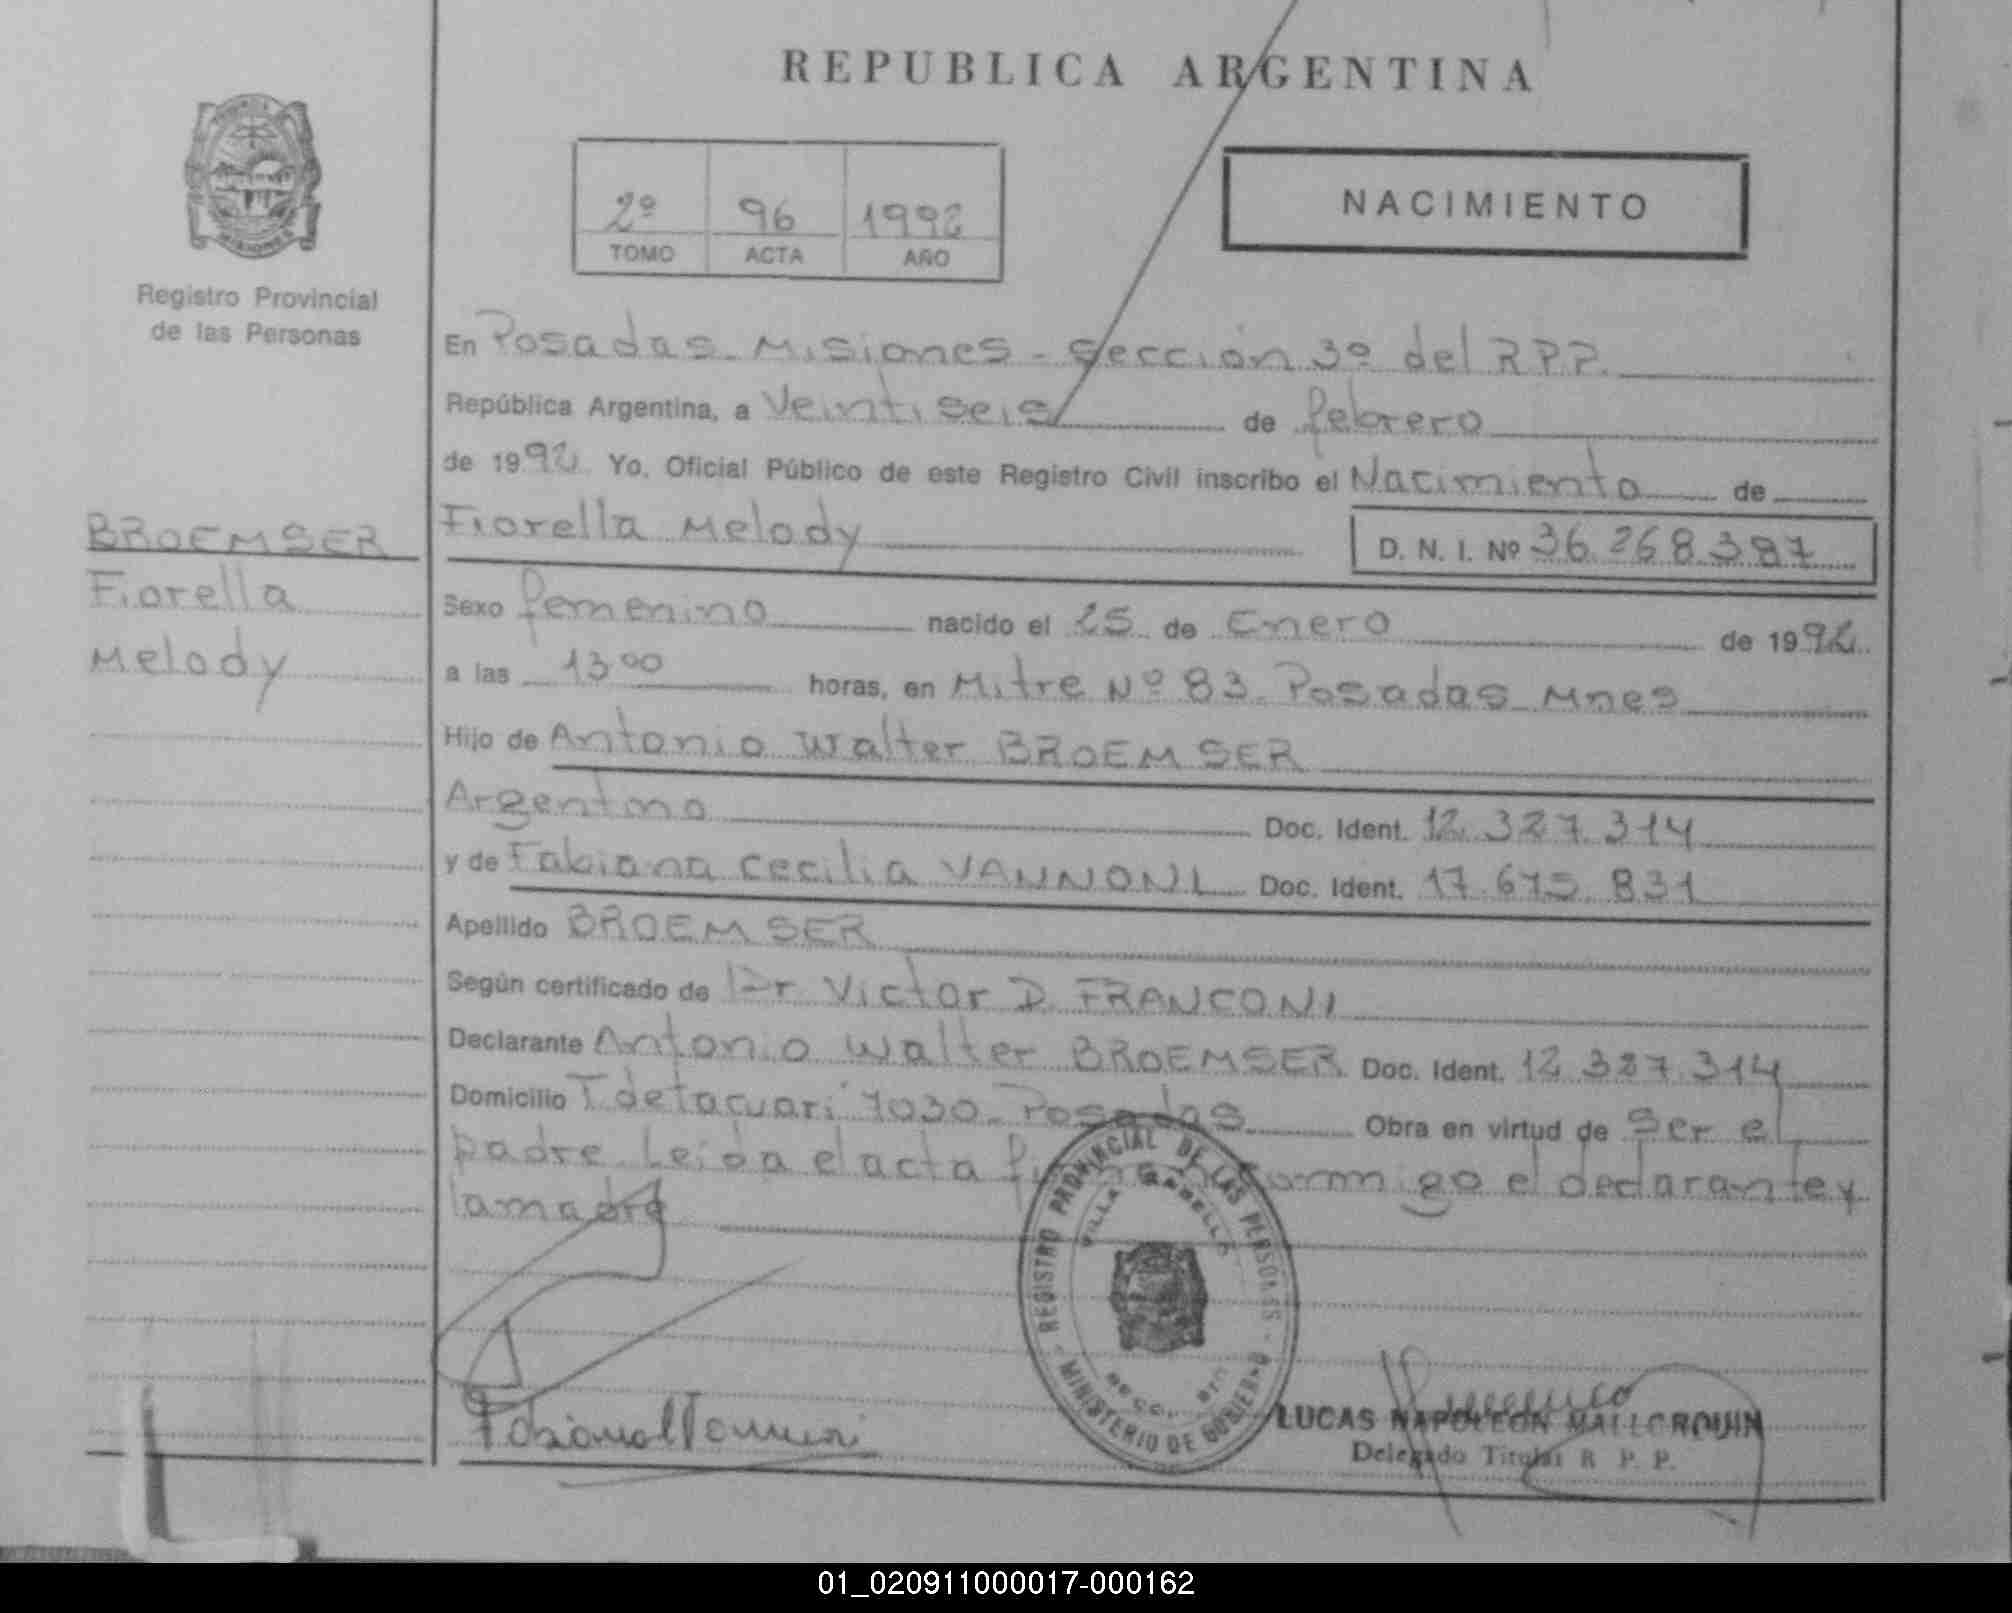 REPUBLICA ARGENTINA
2º 96 1992
TOMO ACTA AÑO
NACIMIENTO
MISIONES
Registro Provincial
de las Personas
En Posadas Misiones - Sección 3º del R.P.P.
República Argentina, a Veintiseis de febrero
de 1992 Yo, Oficial Público de este Registro Civil inscribo el Nacimiento de
Fiorella Melody D. N. I. Nº 36.268.387
BROEMSER
Fiorella
Melody
Sexo femenino nacido el 25 de Enero de 1992
a las 13 00 horas, en Mitre Nº 83 Posadas Mnes
Hijo de Antonio Walter BROEMSER
Argentino Doc. Ident. 12.327.314
y de Fabiana Cecilia VANNONI Doc. Ident. 17.675.831
Apellido BROEMSER
Según certificado de Dr Victor D. FRANCONI
Declarante Antonio Walter BROEMSER Doc. Ident. 12.327.314
Domicilio T de tacuari 1030 Posadas Obra en virtud de Ser el
padre. Leida el acta conmigo el declarante y
la madre
REGISTRO PROVINCIAL DE LAS PERSONAS - MINISTERIO DE GOBIERNO
VILLA SARMIENTO
LUCAS NAPOLEON MALLORQUIN
Delegado Titular R. P. P.
01_020911000017-000162